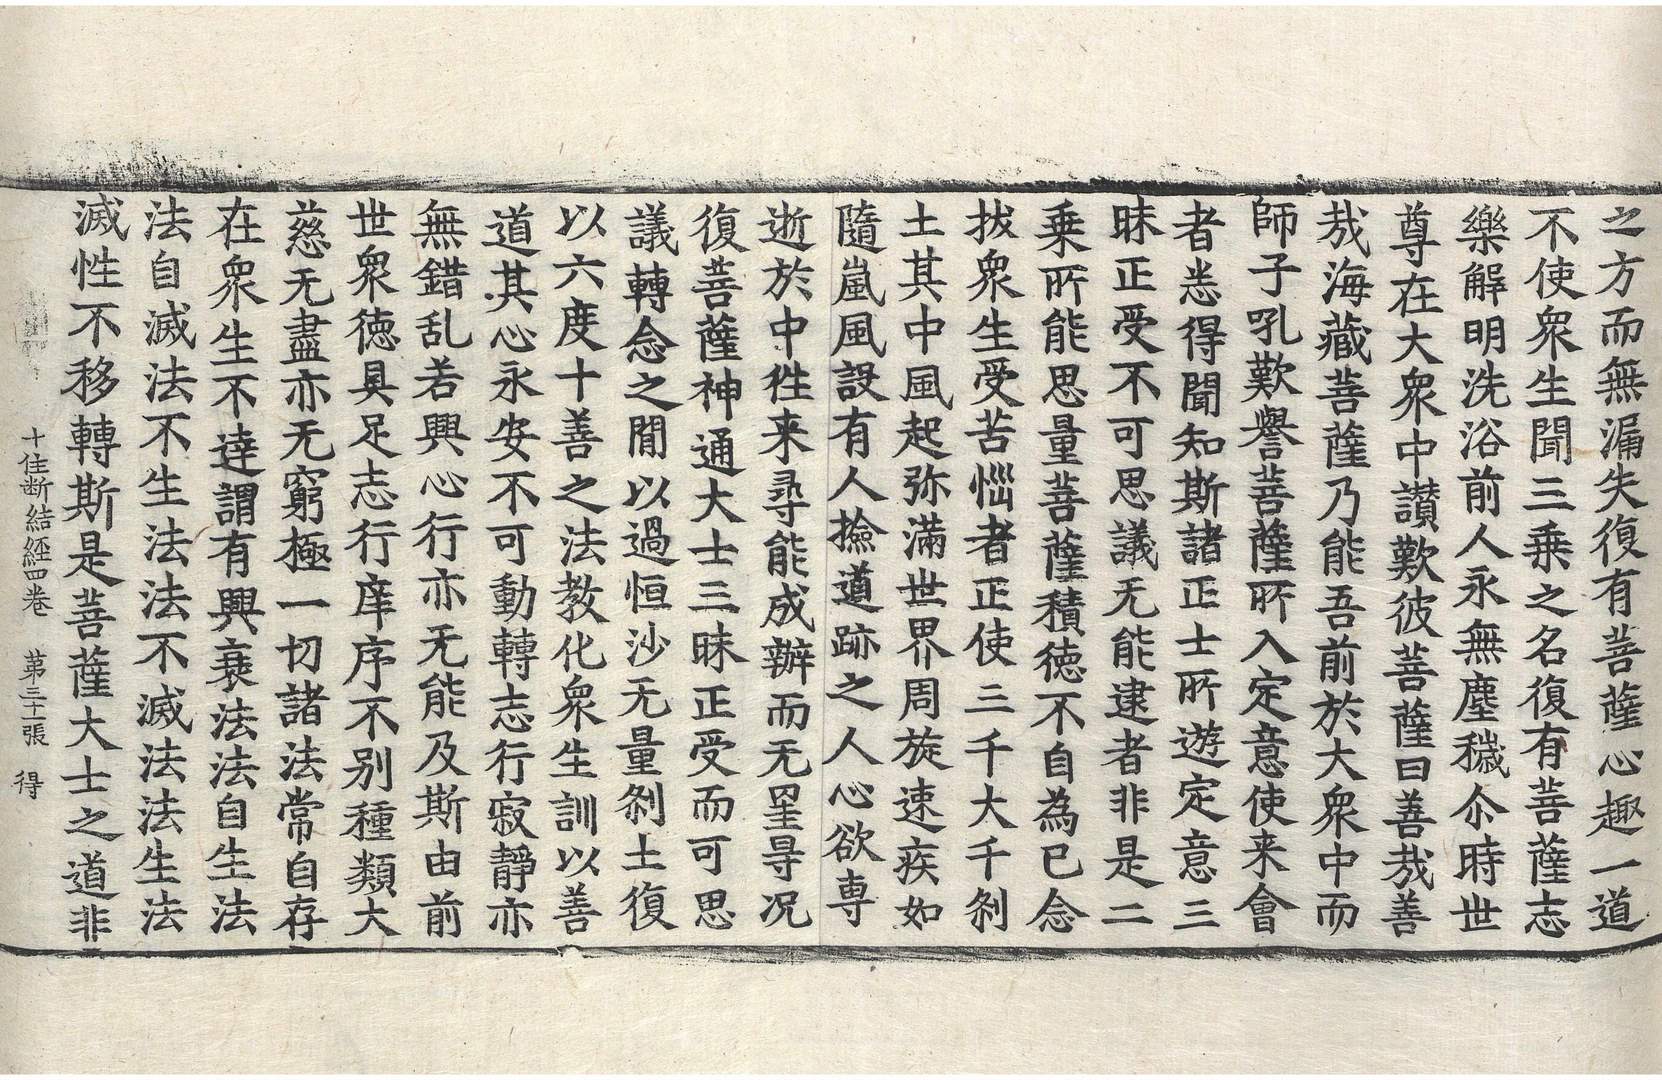 之方而無漏失復有菩薩心趣一道
不使衆生聞三乗之名復有菩薩志
樂解明洗浴前人永無塵穢尒時世
尊在大衆中讃歎彼菩薩曰善㢤善
㢤海藏菩薩乃能吾前於大衆中而
師子吼歎譽菩薩所入定意使来會
者悉得聞知斯諸正士所遊定意三
昧正受不可思議无能逮者非是二
乗所能思量菩薩積徳不自為己念
拔衆生受苦惱者正使三千大千刹
土其中風起弥滿世界周旋速疾如
隨嵐風設有人撿道跡之人心欲専
逝於中徃来尋能成辦而无罣㝵况
復菩薩神通大士三昧正受而可思
議轉念之間以過恒沙无量刹土復
以六度十善之法教化衆生訓以善
道其心永安不可動轉志行寂靜亦
無錯乱若興心行亦无能及斯由前
世衆徳具足志行庠序不別種類大
慈无盡亦无窮極一切諸法常自存
在衆生不達謂有興衰法法自生法
法自滅法不生法法不滅法法生法
滅性不移轉斯是菩薩大士之道非
十住断結經四卷　第三十一張　得